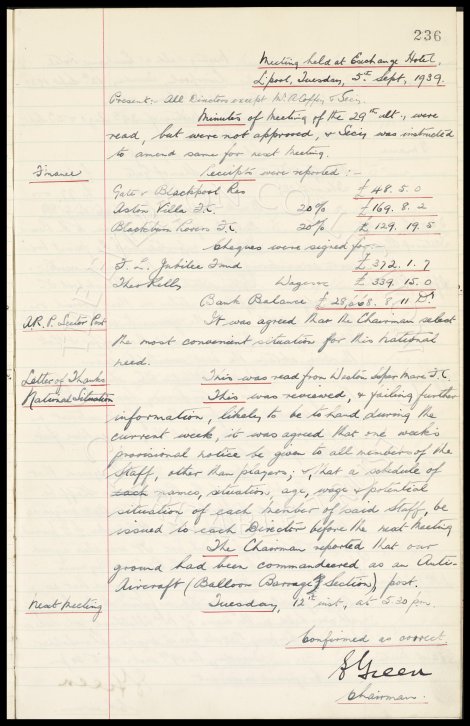 236
Meeting held at Exchange Hotel,
L'pool, Tuesday, 5th Sept, 1939.
Present:- All Directors except Mr. R. Coffey & Secy.
Minutes of Meeting of the 29th ult., were
read, but were not approved, & Secy was instructed
to amend same for next Meeting.
Finance Receipts were reported:-
Gate v Blackpool Res £ 48. 5. 0
Aston Villa F.C. 20% £169. 8. 2
Blackburn Rovers F.C. 20% £ 129. 19. 5
Cheques were signed for:-
F. L. Jubilee Fund £ 372. 1. 7
Theo Kelly Wages £ 339. 15. 0
Bank Balance £ 28,668. 8. 11 Dr
A.R.P. Sector Post It was agreed that the Chairman select
the most convenient situation for this national
need.
Letter of Thanks This was read from Weston Super Mare F.C.
National Situation This was reviewed, & failing further
information, likely to be to hand during the
current week, it was agreed that one week's
provisional notice be given to all members of the
Staff, other than players; &, that a schedule of
each names, situation, age, wage & potential
situation of each member of said Staff, be
issued to each Director before the next Meeting
The Chairman reported that our
ground had been commandeered as an Anti-
Aircraft (Balloon Barrage Section) post.
Next Meeting Tuesday, 12th inst, at 5.30 pm.
Confirmed as correct.
Green
Chairman.